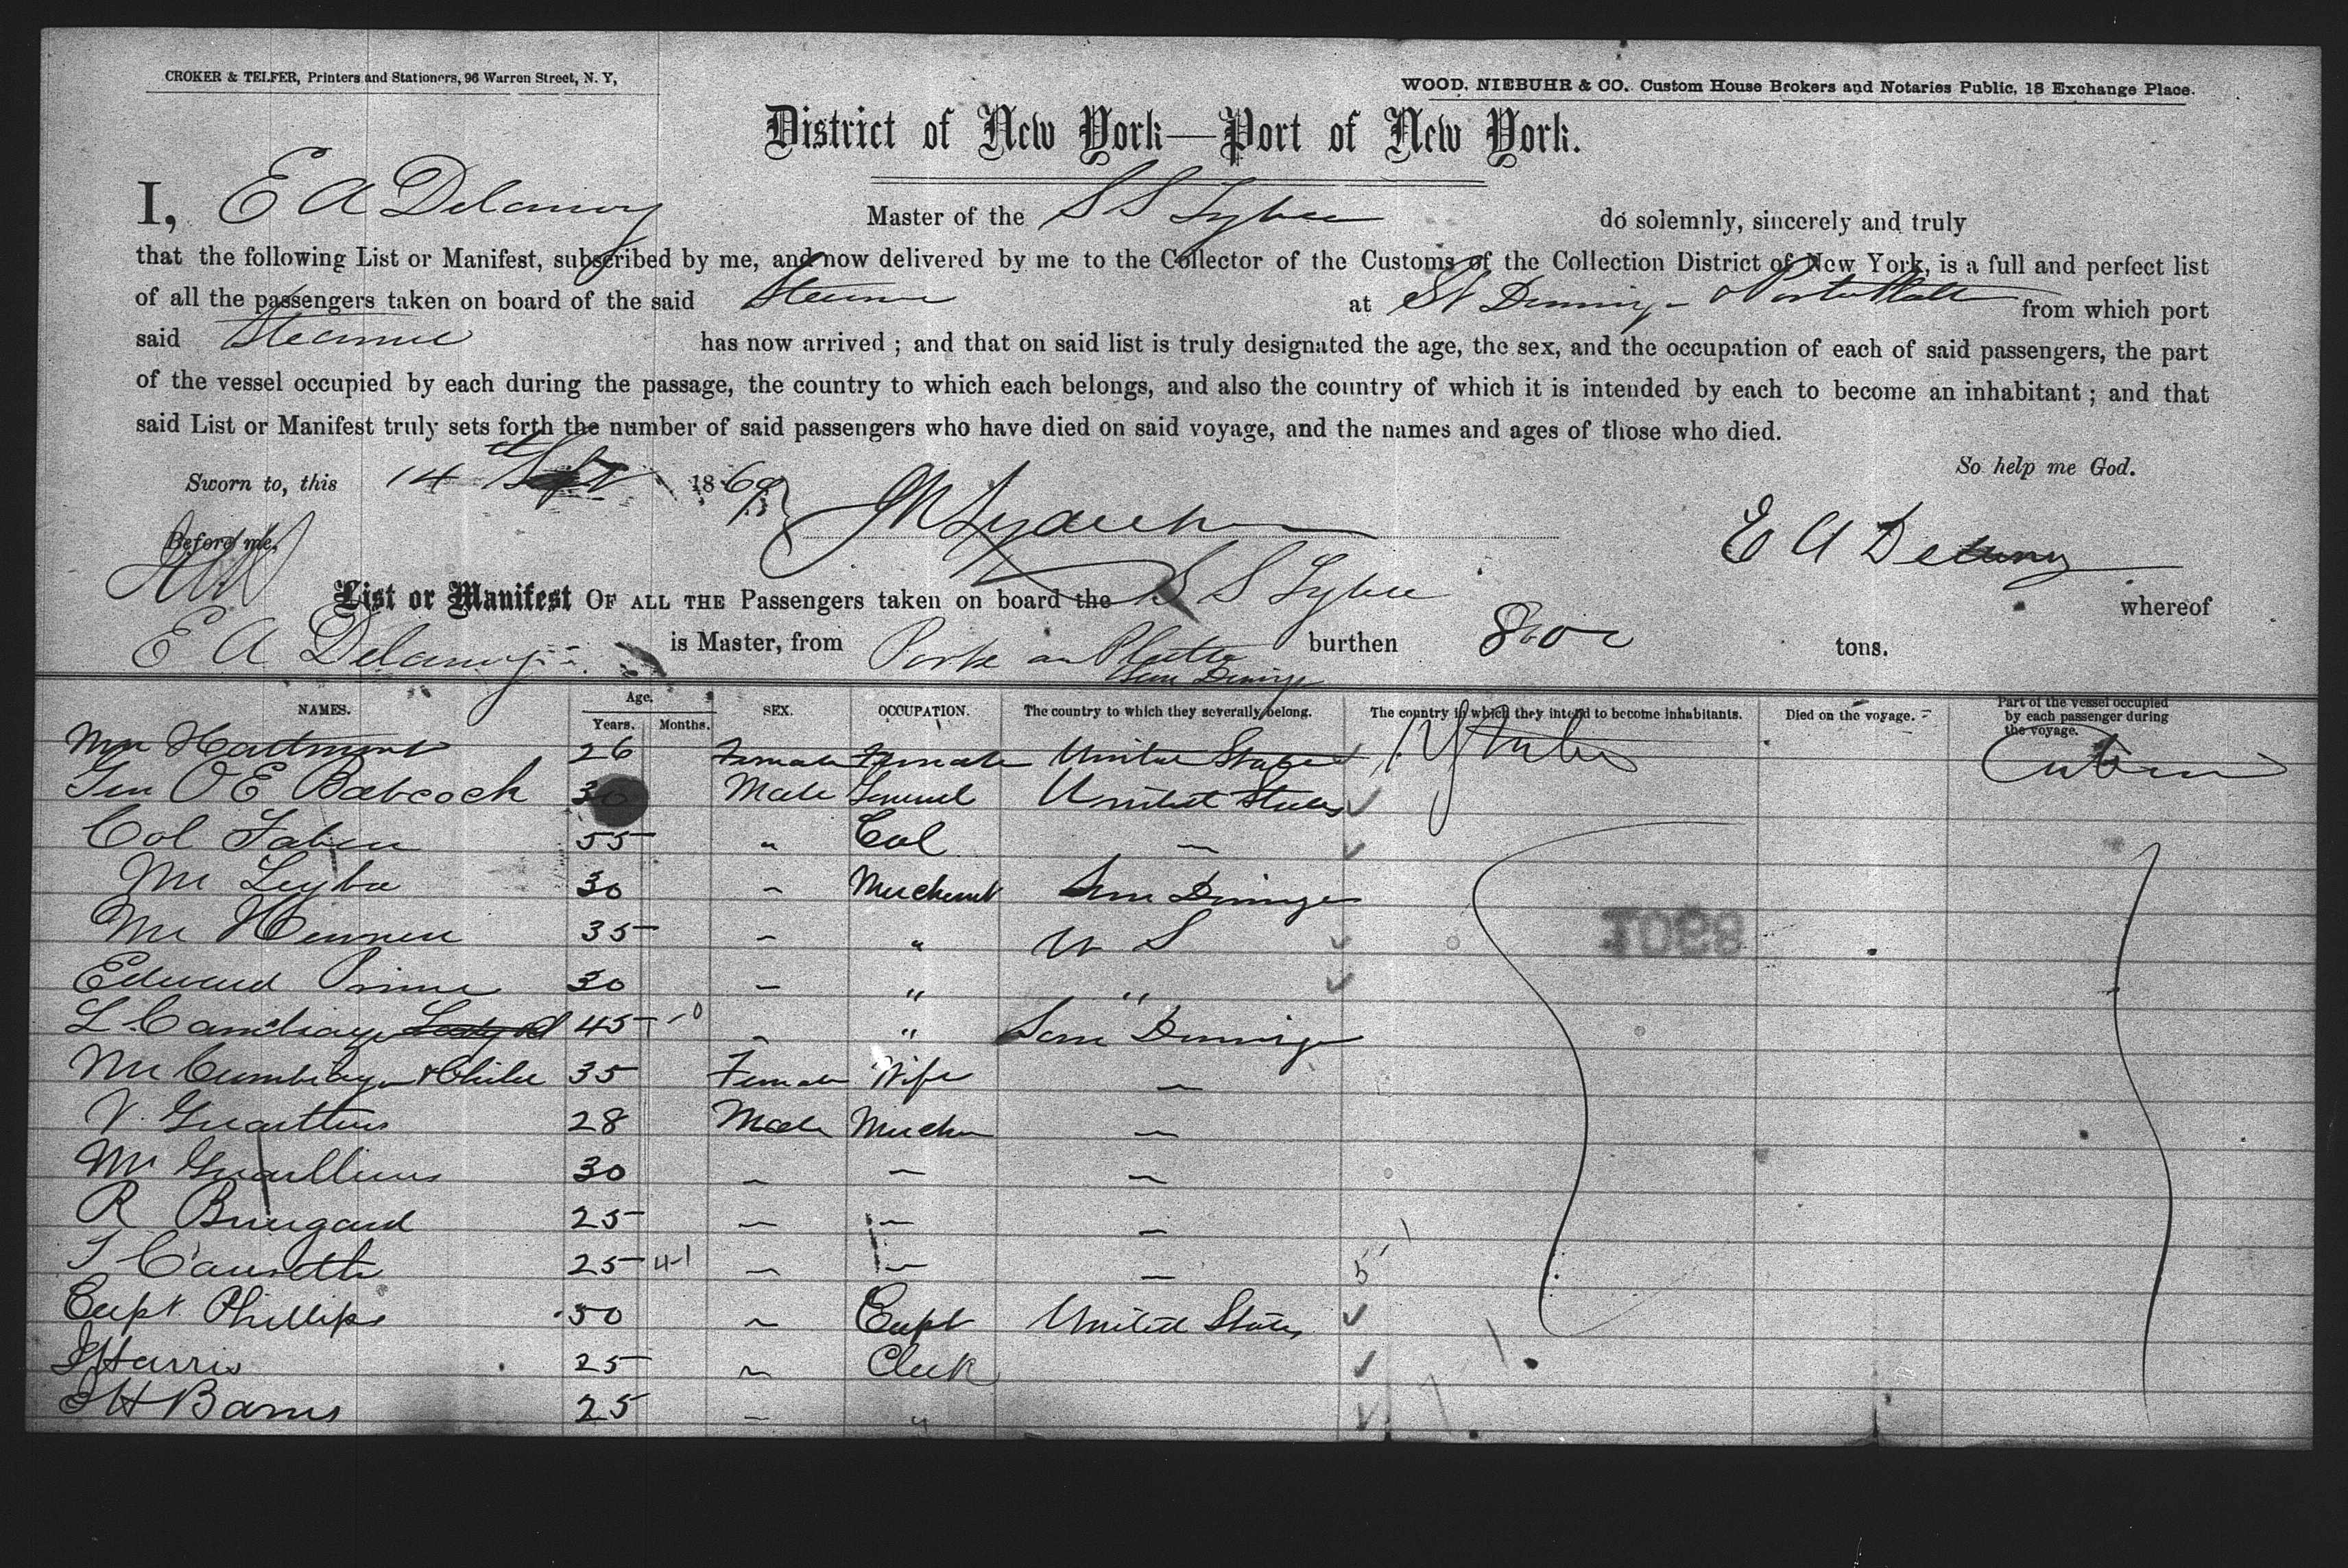 CROKER & TELFER, Printers and Stationers, 96 Warren Street, N. Y,
WOOD, NIEBUHR & CO. Custom House Brokers and Notaries Public, 18 Exchange Place.
District of New York—Port of New York.
I, E A Delanoy Master of the S S Tybee do solemnly, sincerely and truly
that the following List or Manifest, subscribed by me, and now delivered by me to the Collector of the Customs of the Collection District of New York, is a full and perfect list
of all the passengers taken on board of the said Steamer at St Domingo Porto Platte from which port
said Steamer has now arrived ; and that on said list is truly designated the age, the sex, and the occupation of each of said passengers, the part
of the vessel occupied by each during the passage, the country to which each belongs, and also the country of which it is intended by each to become an inhabitant ; and that
said List or Manifest truly sets forth the number of said passengers who have died on said voyage, and the names and ages of those who died.
So help me God.
Sworn to, this 14 Sept 1869
Before me,
E A Delanoy
List or Manifest OF ALL THE Passengers taken on board the S S Tybee whereof
E A Delanoy is Master, from Porto Platte burthen tons.
San Domingo
NAMES. Age. Years. Months. SEX. OCCUPATION. The country to which they severally belong. The country in which they intend to become inhabitants. Died on the voyage. Part of the vessel occupied by each passenger during the voyage.
26 Female Female United States Cabin
Gen O E Babcock 30 Male General United States
Col 55 " Col —
Mr Leyba 30 — Merchant San Domingo
Mr 35 — " U S
Edward Prime 30 — " "
L Cambiaso 45 — " San Domingo
Mrs Cambiaso & Child 35 Female Wife —
V. 28 Male Merchan —
Mr 30 — — —
R 25 — — —
25 — — —
Capt Phillips 50 — Capt United States
J Harris 25 — Clerk
J H Barns 25 — "